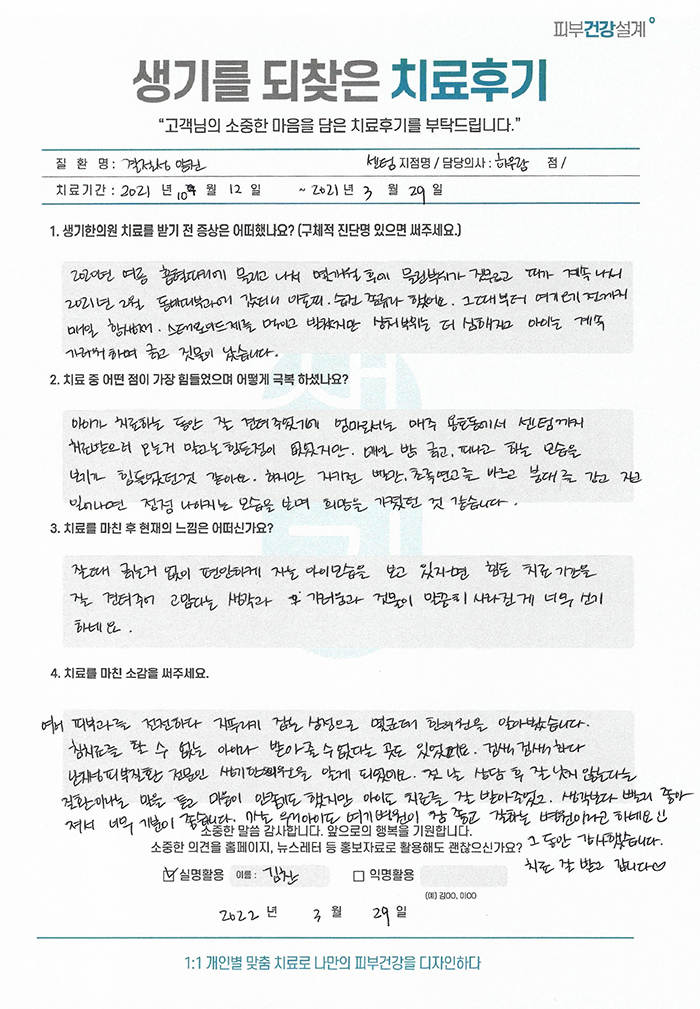 피부건강설계
생기를 되찾은 치료후기
“고객님의 소중한 마음을 담은 치료후기를 부탁드립니다.”
질 환 명 : 결절성 양진 센텀 지점명 / 담당의사 : 하우람 점 /
치료기간 : 2021 년 10 월 12 일 ~ 2021 년 3 월 29 일
1. 생기한의원 치료를 받기 전 증상은 어떠했나요? (구체적 진단명 있으면 써주세요.)
2020년 여름 물리고 나서 몇개월 후에 물린부위가 짓무르고 피가 계속 나서
2021년 2월 동네피부과에 갔더니 아토피. 습진 종류라 했어요. 그때부터 여기오기 전까지
매일 항생제. 스테로이드제를 먹이고 발랐지만 상처부위는 더 심해지고 아이는 계속
가려워하며 긁고 짓물이 났습니다.
2. 치료 중 어떤 점이 가장 힘들었으며 어떻게 극복 하셨나요?
아이가 치료하는 동안 잘 견뎌주었기에 엄마로서는 매주 에서 센텀까지
치료받으러 오는거 말고는 힘든점이 없었지만. 매일 밤 긁고, 피나고 하는 모습을
보기가 힘들었던것 같아요. 하지만 자기전 빨간, 초록연고를 바르고 붕대를 감고 자고
일어나면 점점 나아지는 모습을 보며 희망을 가졌던 것 같습니다.
3. 치료를 마친 후 현재의 느낌은 어떠신가요?
잘때 긁는거 없이 편안하게 자는 아이모습을 보고 있자면 힘든 치료 기간을
잘 견뎌주어 고맙다는 생각과 가려움과 진물이 말끔히 사라진게 너무 신기
하네요.
4. 치료를 마친 소감을 써주세요.
여러 피부과를 전전하다 지푸라기 잡는 심정으로 몇군데 한의원을 알아봤습니다.
침치료를 할 수 없는 아이라 받아줄 수 없다는 곳도 있었어요. 검색, 검색하다
난치성 피부질환 전문인 생기한의원을 알게 되었어요. 첫 날 상담 후 잘 낫지 않는다는
질환이라는 말을 듣고 마음이 안좋기도 했지만 아이도 치료를 잘 받아주었고. 생각보다 빨리 좋아
져서 너무 기분이 좋습니다. 우리아이도 여기병원이 참 좋고 잘하는 병원이라고 하네요
소중한 말씀 감사합니다. 앞으로의 행복을 기원합니다.
소중한 의견을 홈페이지, 뉴스레터 등 홍보자료로 활용해도 괜찮으신가요?
그동안 감사했습니다.
치료 잘 받고 갑니다♡
☑ 실명활용 이름 : 김찬 □ 익명활용
(예) 김OO, 이OO
2022 년 3 월 29 일
1:1 개인별 맞춤 치료로 나만의 피부건강을 디자인하다